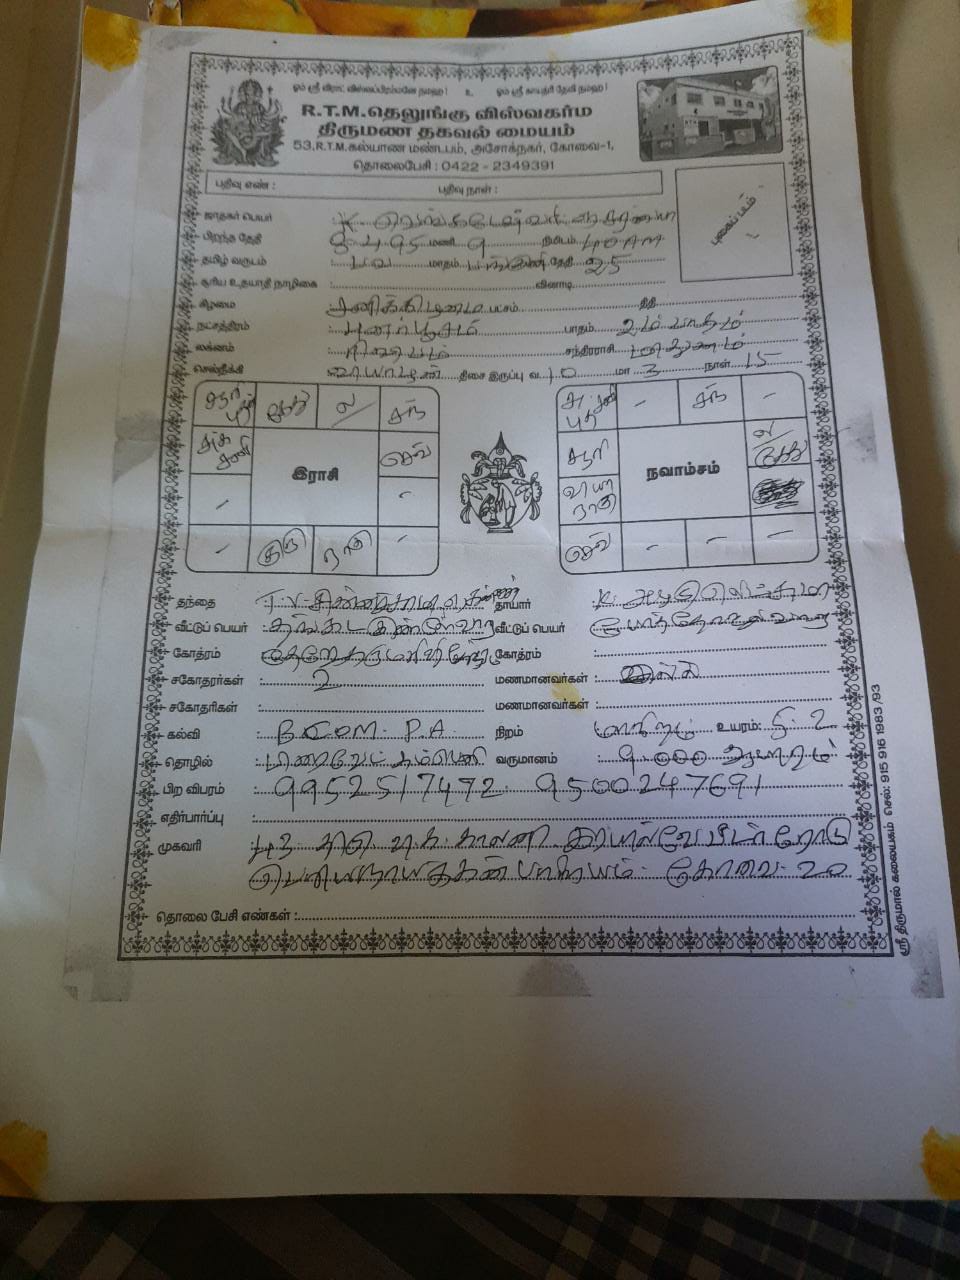 ஓம் ஸ்ரீ விராட் விஸ்வப்பிரம்மனே நமஹ! உ ஓம் ஸ்ரீ காயத்ரி தேவி நமஹ!
R.T.M.தெலுங்கு விஸ்வகர்ம
திருமண தகவல் மையம்
53,R.T.M.கல்யாண மண்டபம், அசோக்நகர், கோவை-1,
தொலைபேசி : 0422 - 2349391
பதிவு எண் : பதிவு நாள் :
புகைப்படம்
ஜாதகர் பெயர் : K.
பிறந்த தேதி : 8.4.95 மணி 9 நிமிடம் 40 AM
தமிழ் வருடம் : பவ மாதம் பங்குனி தேதி 25
சூரிய உதயாதி நாழிகை : வினாடி
கிழமை : சனிக்கிழமை பட்சம் திதி
நட்சத்திரம் : புனர்பூசம் பாதம் 2ம் பாதம்
லக்னம் : ரிஷபம் சந்திரராசி மிதுனம்
செல்நீக்கி : வியாழன் திசை இருப்பு வ 10 மா 3 நாள் 15
சூரி புதன் கேது ல/ சந் சுக் சனி புத - சந் -
சுக் சனி இராசி செவ் சூரி நவாம்சம் ல/ கேது
- - வியா ராகு
- குரு ராகு - செவ் - - -
தந்தை : T.V. சின்னசாமி கண்ணன் தாயார் : K.
வீட்டுப் பெயர் : வீட்டுப் பெயர் :
கோத்ரம் : கோத்ரம் :
சகோதரர்கள் : 2 மணமானவர்கள் : இல்லை
சகோதரிகள் : மணமானவர்கள் :
கல்வி : B.COM. P.A. நிறம் : மாநிறம் உயரம்: 5.2
தொழில் : பிரைவேட் கம்பெனி வருமானம் : 9,000 ஆயிரம்
பிற விபரம் : 9952517472. 9500247691
எதிர்பார்ப்பு :
முகவரி : காலனி இரயில்வே பீடர் ரோடு
பெரியநாயக்கன் பாளையம். கோவை-20
தொலை பேசி எண்கள் :
ஸ்ரீ திருமால் கலையகம் செல்: 915 916 1983 /93